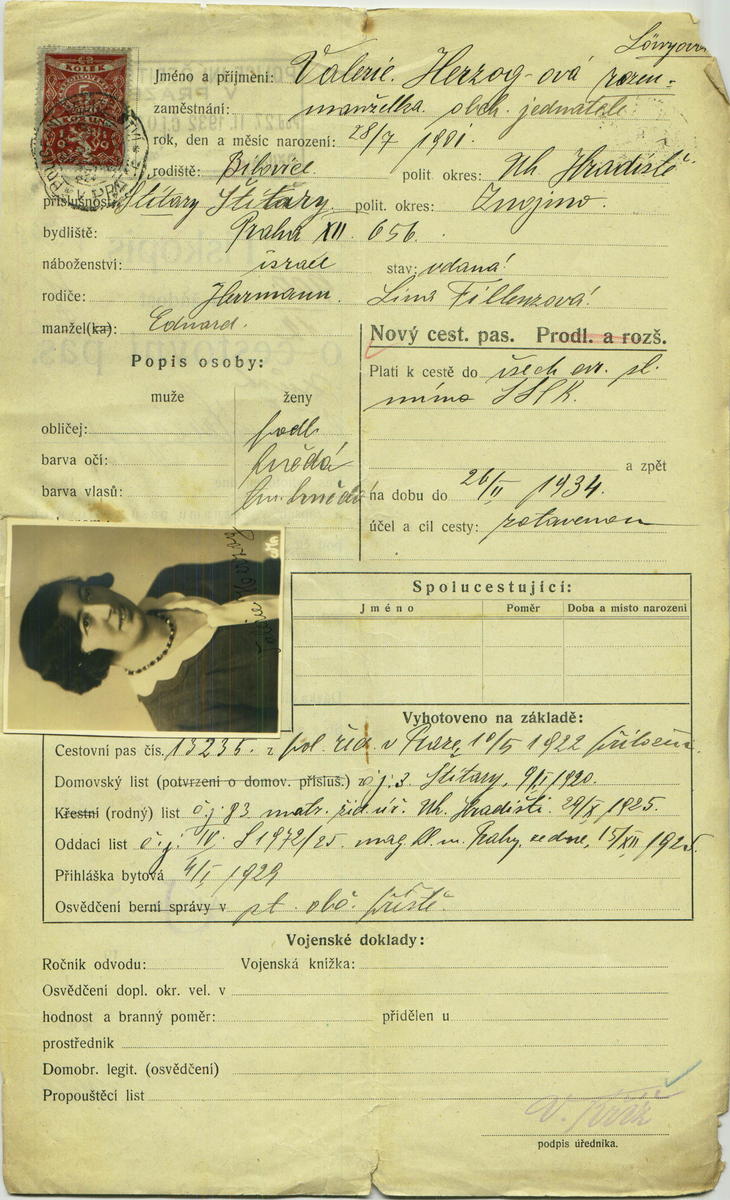 Löwyová
Jméno a příjmení: Valerie Herzog-ová rozen.
zaměstnání: manželka obch. jednatele
rok, den a měsíc narození: 28/7 1901.
rodiště: Bilovice. polit. okres: Uh. Hradiště
příslušnost: Štítary Štítary polit. okres: Znojmo.
bydliště: Praha XII. 656.
náboženství: israel stav: vdaná
rodiče: Herrmann. Lina Fillenzová
manžel(ka): Eduard.
Nový cest. pas. Prodl. a rozš.
Popis osoby:
Platí k cestě do všech evr. st.
mimo SSSR.
muže ženy
obličej: podl.
barva očí: hnědá
a zpět
barva vlasů: tm. hnědá
na dobu do 26/II 1934.
účel a cíl cesty: zotavenou
Valerie Herzog
Spolucestující:
Jméno Poměr Doba a místo narození
Vyhotoveno na základě:
Cestovní pas čís. 13235. z pol. řed. v Praze 1922
Domovský list (potvrzení o domov. přísluš.) z č.j. 3. Štítary, 1920.
Křestní (rodný) list č.j. 83 matr. Uh. Hradiští 1925.
Oddací list č.j. IV. S 1972/25. mag. hl. m. Prahy, ze dne, 15/XII 1925.
Přihláška bytová 4/I 1929
Osvědčení berní správy v
Vojenské doklady:
Ročník odvodu: Vojenská knížka:
Osvědčení dopl. okr. vel. v
hodnost a branný poměr: přidělen u
prostředník
Domobr. legit. (osvědčení)
Propouštěcí list
podpis úředníka.